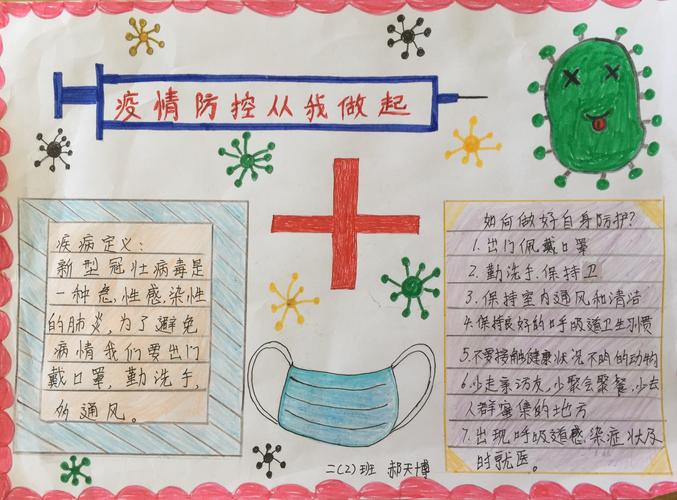 疫情防控从我做起
疾病定义：
新型冠壮病毒是
一种急，性感染性
的肺炎，为了避免
病情我们要出门
戴口罩，勤洗手，
多通风。
如何做好自身防护？
1.出门佩戴口罩
2.勤洗手.保持卫
3.保持室内通风和清洁
4.保持良好的呼吸道卫生习惯
5.不要接触健康状况不明的动物
6.少走亲访友，少聚会聚餐，少去
人群密集的地方
7.出现呼吸道感染症状及
时就医。
二(2)班 郝天博